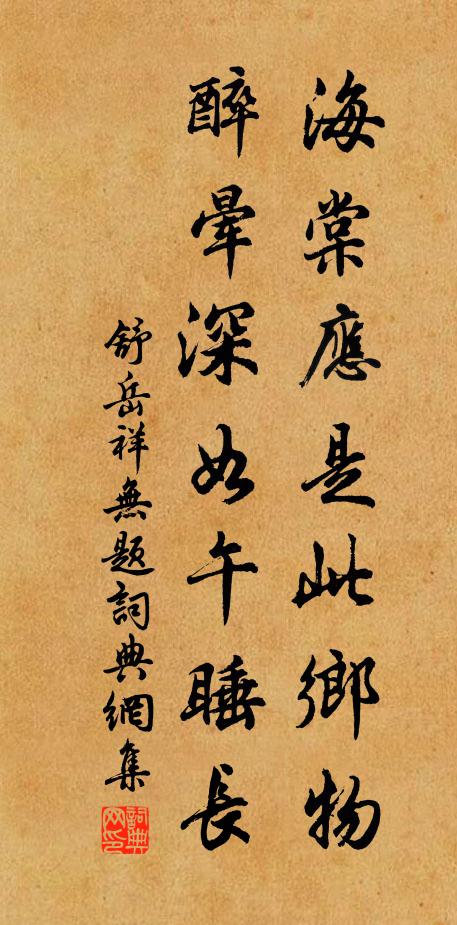 海棠應是此鄉物
醉暈深如午睡長
舒岳祥無題詞典網集
詞典网印